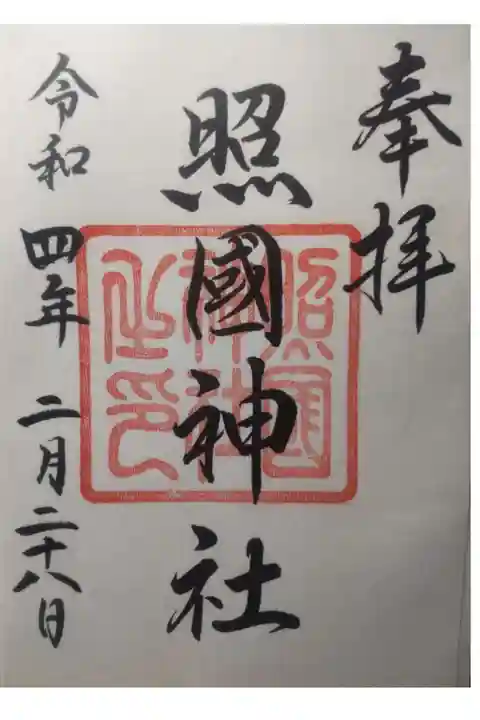 奉拝
照國神社
照國神社之印
令和四年二月二十八日